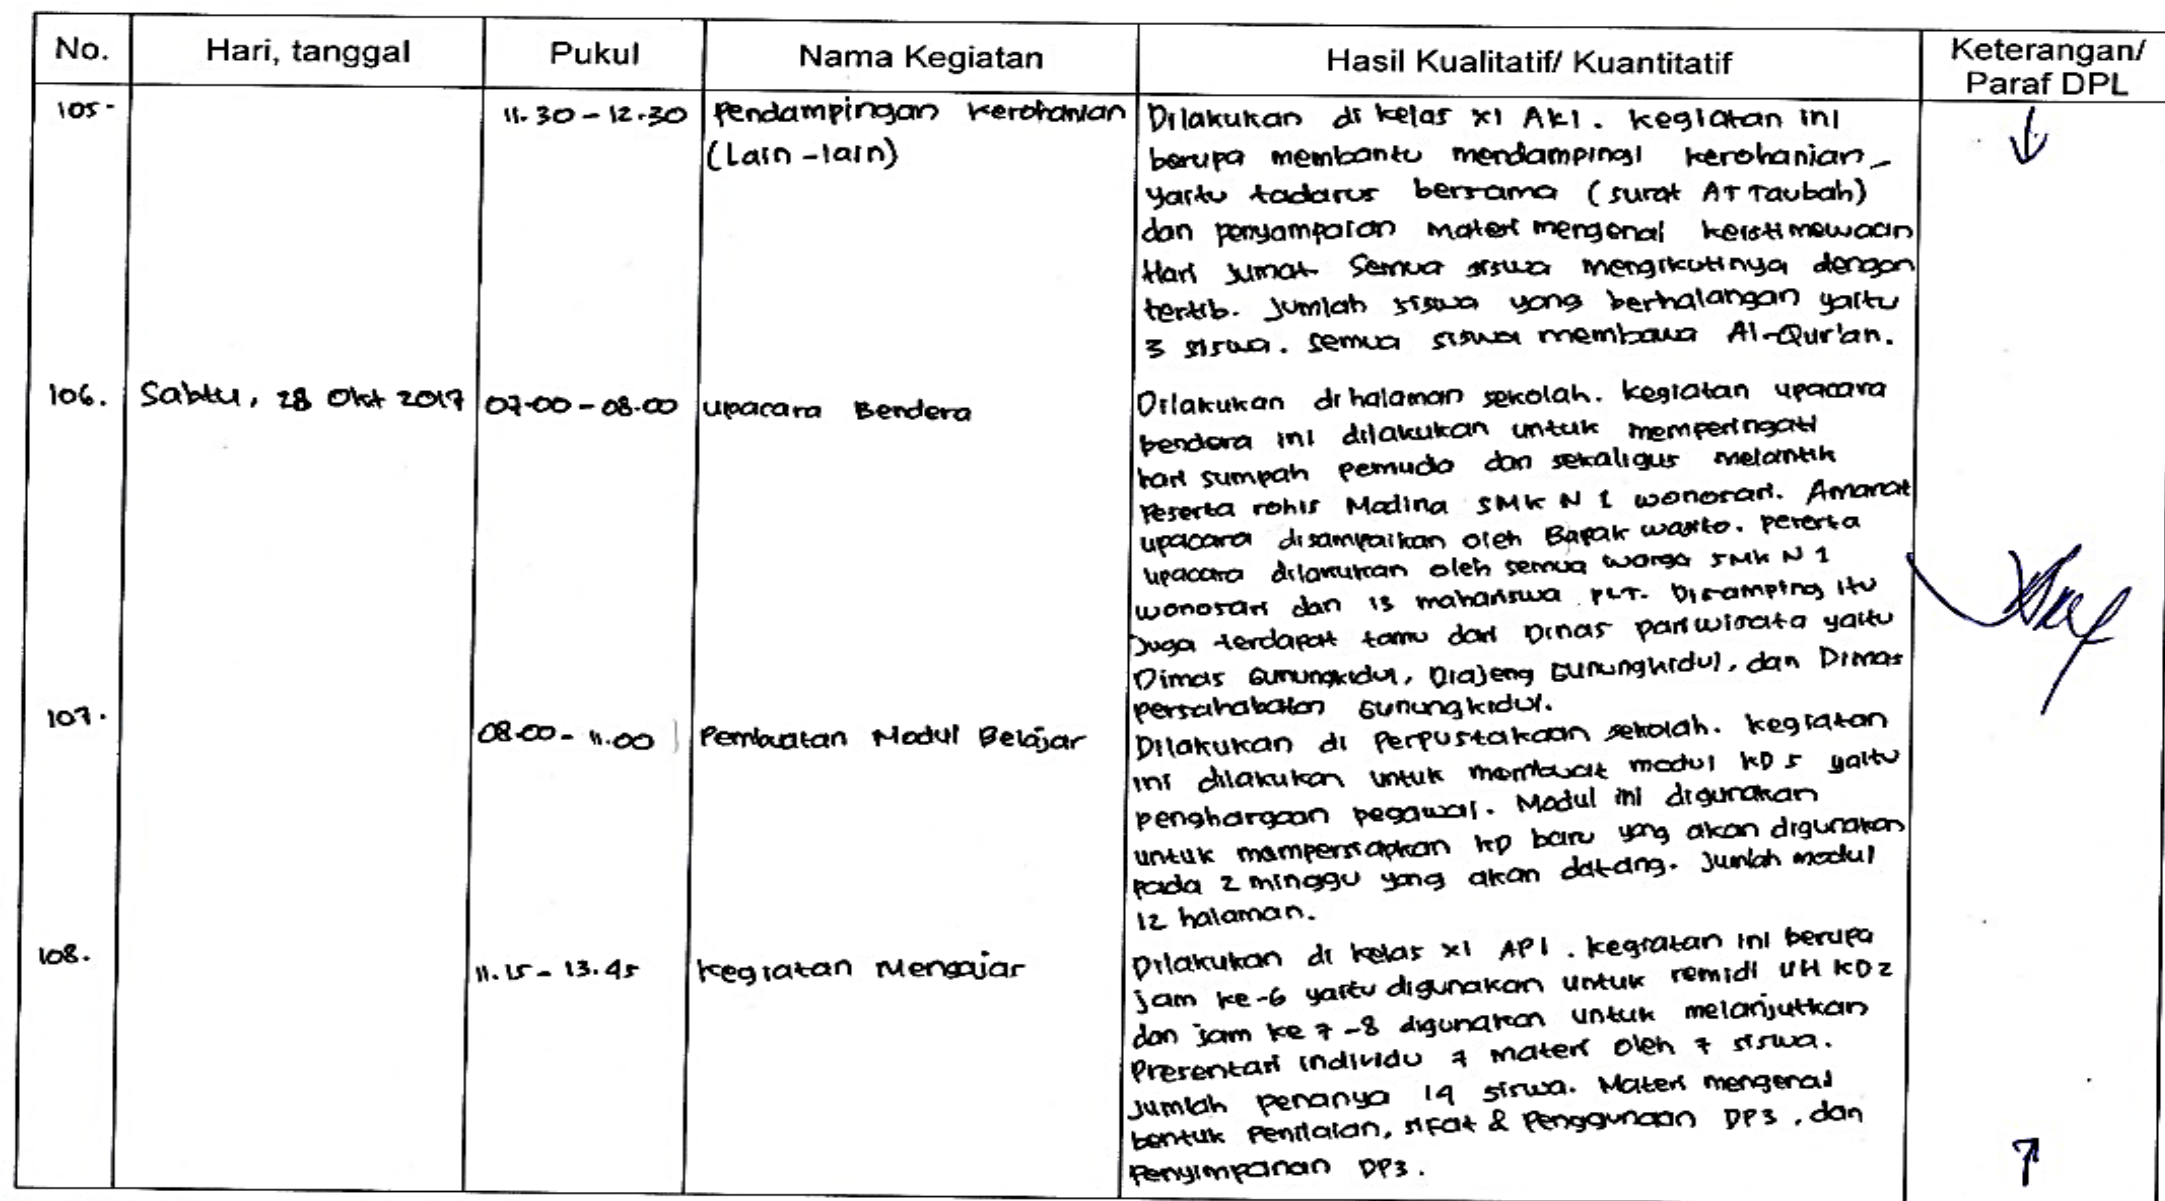 No. Hari, tanggal Pukul Nama Kegiatan Hasil Kualitatif/ Kuantitatif Keterangan/
Paraf DPL
105. 11.30 - 12.30 Pendampingan Kerohanian Dilakukan di kelas XI AK1. Kegiatan ini
(Lain-lain) berupa membantu mendampingi kerohanian
yaitu tadarus bersama (surat At Taubah)
dan penyampaian materi mengenai keistimewaan
Hari Jumat. Semua siswa mengikutinya dengan
tertib. Jumlah siswa yang berhalangan yaitu
3 siswa. Semua siswa membawa Al-Qur'an.
106. Sabtu, 28 Okt 2017 07.00 - 08.00 Upacara Bendera Dilakukan di halaman sekolah. Kegiatan upacara
bendera ini dilakukan untuk memperingati
hari sumpah pemuda dan sekaligus melantik
Peserta rohis Madina SMK N 1 Wonosari. Amanat
upacara disampaikan oleh Bapak Wasito. Peserta
upacara dilakukan oleh semua warga SMK N 1
Wonosari dan 13 mahasiswa PLT. Disamping itu
Juga terdapat tamu dari Dinas pariwisata yaitu
Dimas Gunungkidul, Diajeng Gunungkidul, dan Dimas
persahabatan Gunungkidul.
107. 08.00 - 11.00 Pembuatan Modul Belajar Dilakukan di Perpustakaan sekolah. Kegiatan
ini dilakukan untuk membuat modul KD 5 yaitu
penghargaan pegawai. Modul ini digunakan
untuk mempersiapkan KD baru yang akan digunakan
pada 2 minggu yang akan datang. Jumlah modul
12 halaman.
108. 11.15 - 13.45 Kegiatan Mengajar Dilakukan di kelas XI AP1. Kegiatan ini berupa
jam ke-6 yaitu digunakan untuk remidi UH KD 2
dan jam ke 7-8 digunakan untuk melanjutkan
Presentasi individu 7 materi oleh 7 siswa.
Jumlah penanya 14 siswa. Materi mengenai
bentuk Penilaian, sifat & Penggunaan DP3, dan
Penyimpanan DP3.